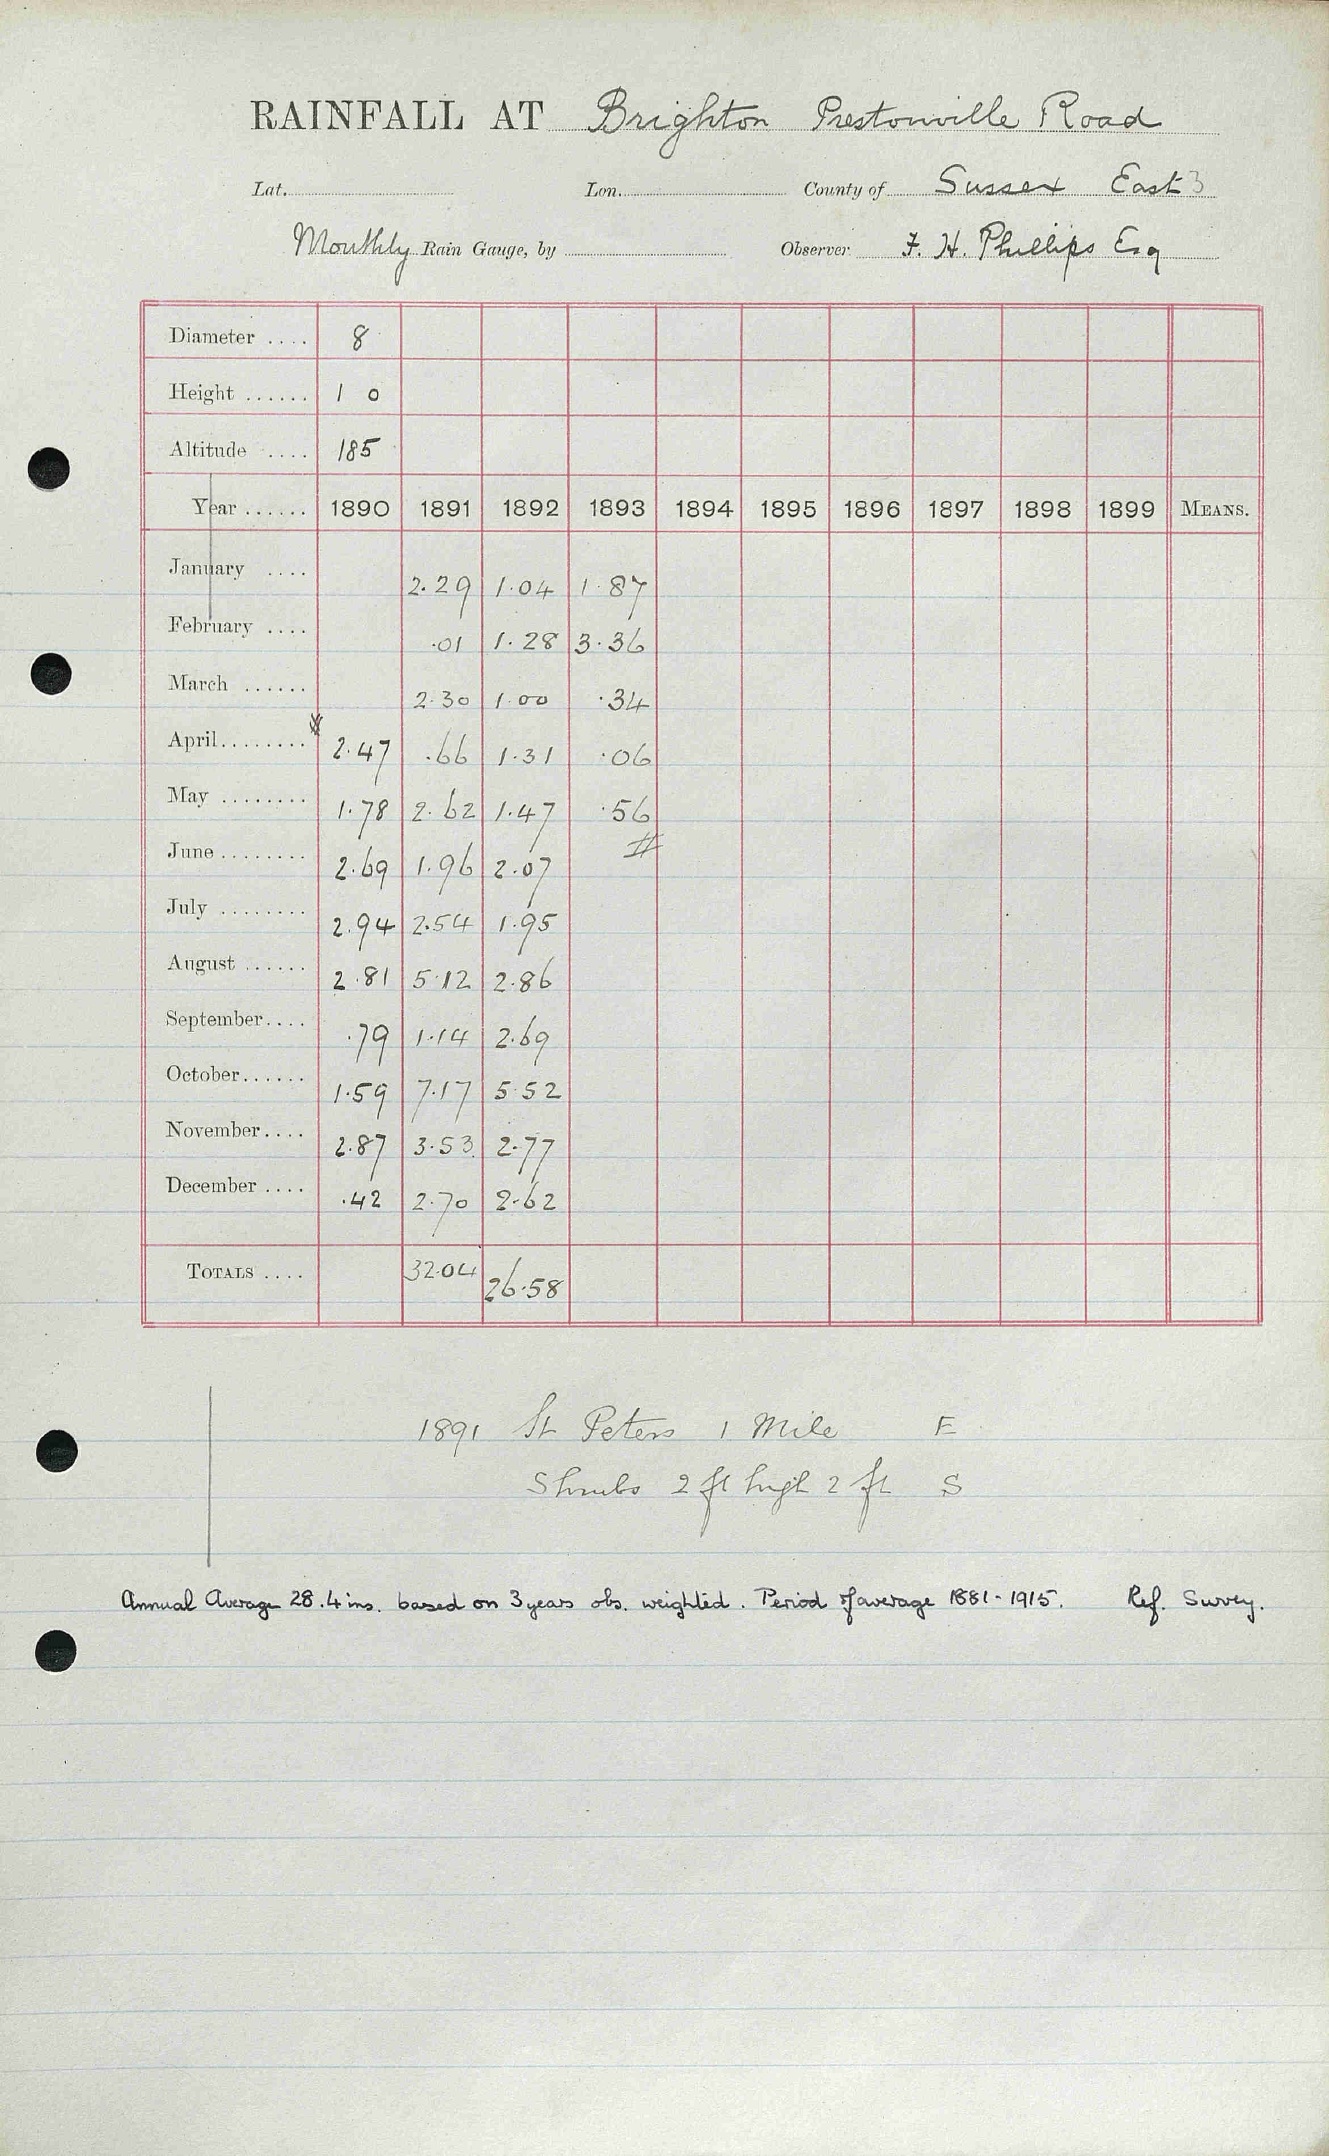 RAINFALL AT Brighton Prestonville Road
Lat. Lon. County of Sussex East 3
Monthly Rain Gauge, by Observer F. H. Phillips Esq
Diameter .... 8
Height ...... 1 0
Altitude .... 185
Year ...... 1890 1891 1892 1893 1894 1895 1896 1897 1898 1899 MEANS.
January .... 2.29 1.04 1.87
February .... .01 1.28 3.36
March ...... 2.30 1.00 .34
April........ 2.47 .66 1.31 .06
May ........ 1.78 2.62 1.47 .56
June ........ 2.69 1.96 2.07
July ........ 2.94 2.54 1.95
August ...... 2.81 5.12 2.86
September.... .79 1.14 2.69
October...... 1.59 7.17 5.52
November.... 2.87 3.53 2.77
December .... .42 2.70 2.62
TOTALS .... 32.04 26.58
1891 St Peters 1 Mile E
Shrubs 2 ft high 2 ft S
Annual Average 28.4 ins. based on 3 years obs. weighted. Period of average 1881-1915. Ref. Survey.